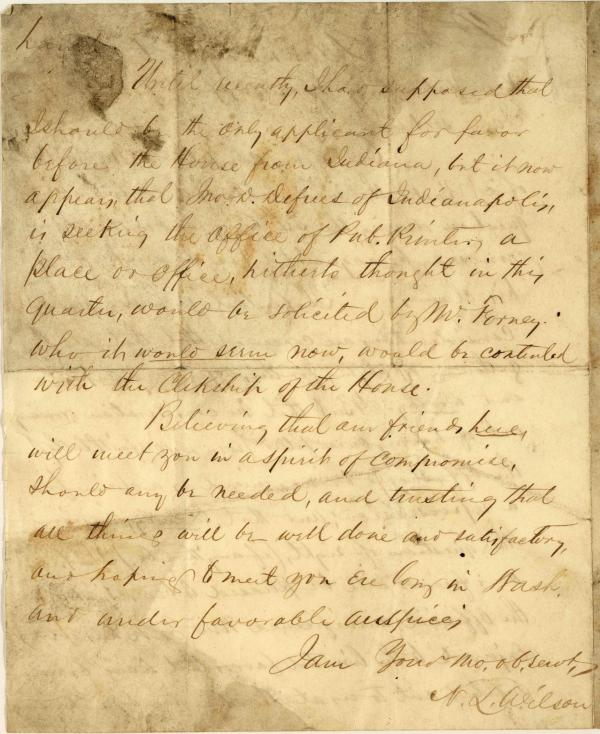 Until recently, I have supposed that
I should be the only applicant for favor
before the House from Indiana, but it now
appears, that Jno. D. Defrees of Indianapolis,
is seeking the office of Pub. Printer, a
place or office, hitherto thought in this
quarter, would be solicited by Mr. Forney.
who it would seem now, would be contented
with the Clerkship of the House.
Believing that our friends here,
will meet you in a spirit of compromise,
should any be needed, and trusting that
all things will be well done and satisfactory,
and hoping to meet you ere long in Wash.
and under favorable auspices
I am Your mo. ob. servt,
N. L. Wilson